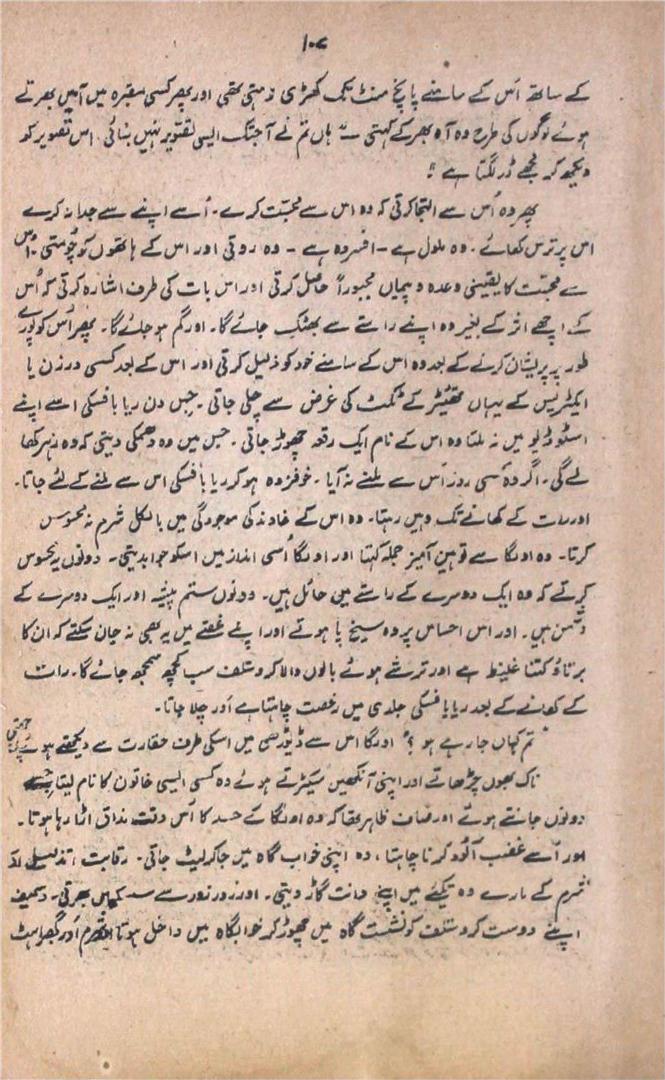 ۱۰۷
کے ساتھ اس کے سامنے پانچ منٹ تک کھڑی رہتی تھی اور پھر کسی مقبرہ میں آہیں بھرتے
ہوئے لوگوں کی طرح وہ آہ بھر کے کہتی ”ہاں تم نے آجتک ایسی تصویر نہیں بنائی۔ اس تصویر کو
دیکھ کر مجھے ڈر لگتا ہے“
پھر وہ اُس سے التجا کرتی کہ وہ اس سے محبت کرے۔ اُسے اپنے سے جدا نہ کرے
اس پر ترس کھائے۔ وہ ملول ہے – افسردہ ہے – وہ روتی اور اس کے ہاتھوں کو چُومتی۔ اُس
سے محبت کا یقینی وعدہ و پیماں مجبوراً حاصل کرتی اور اس بات کی طرف اشارہ کرتی کہ اُس
کے اچھے اثر کے بغیر وہ اپنے راستے سے بھٹک جائے گا۔ اور گم ہو جائے گا۔ پھر اُس کو پورے
طور پر پریشان کرنے کے بعد وہ اس کے سامنے خود کو ذلیل کرتی اور اس کے بعد کسی درزن یا
ایکٹریس کے یہاں تھیٹر کے ٹکٹ کی غرض سے چلی جاتی۔ جس دن ریابافسکی اسے اپنے
اسٹوڈیو میں نہ ملتا وہ اس کے نام ایک رقعہ چھوڑ جاتی۔ جس میں وہ دھمکی دیتی کہ وہ زہر کھا
لے گی۔ اگر وہ اُسی روز اُس سے ملنے نہ آیا۔ خوفزدہ ہو کر ریابافسکی اس سے ملنے کے لئے جاتا۔
اور رات کے کھانے تک وہیں رہتا۔ وہ اس کے خاوند کی موجودگی میں بالکل شرم نہ محسوس
کرتا۔ وہ اولگا سے توہین آمیز جملہ کہتا اور اولگا اُسی انداز میں اسکو جواب دیتی۔ دونوں یہ محسوس
کرتے کہ وہ ایک دوسرے کے راستے میں حائل ہیں۔ دونوں ستم پیشہ اور ایک دوسرے کے
دشمن ہیں۔ اور اس احساس پر وہ سیخ پا ہوتے اور اپنے غصّے میں یہ بھی نہ جان سکتے کہ ان کا
برتاؤ کتنا غلیظ ہے اور ترشے ہوئے بالوں والا کروستلف سب کچھ سمجھ جائے گا۔ رات
کے کھانے کے بعد ریابافسکی جلدی میں رخصت چاہتا ہے اور چلا جاتا۔
”تم کہاں جا رہے ہو؟“ اولگا اس سے ڈیوڑھی میں اسکی طرف حقارت سے دیکھتے ہوئے پوچھتی
ناک بھوں چڑھاتے اور اپنی آنکھیں سیکڑتے ہوئے وہ کسی ایسی خاتون کا نام لیتا جسے
دونوں جانتے ہوتے اور صاف ظاہر تھا کہ وہ اولگا کے حسد کا اُس وقت مذاق اڑا رہا ہوتا۔
اور اُسے غضب آلود کرنا چاہتا، وہ اپنی خواب گاہ میں جا کر لیٹ جاتی۔ رقابت، تذلیل اور
شرم کے مارے وہ تکئے میں اپنے دانت گاڑ دیتی۔ اور زور زور سے سسکیاں بھرتی۔ دیمیف
اپنے دوست کروستلف کو نشست گاہ میں چھوڑ کر خوابگاہ میں داخل ہوتا شرم اور گھبراہٹ